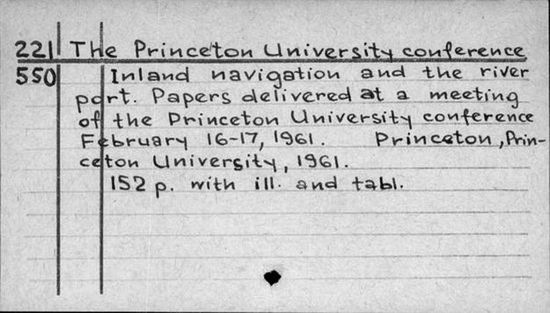 221 The Princeton University conference
550 Inland navigation and the river
port. Papers delivered at a meeting
of the Princeton University conference
February 16-17, 1961. Princeton, Prin-
ceton University, 1961.
152 p. with ill. and tabl.